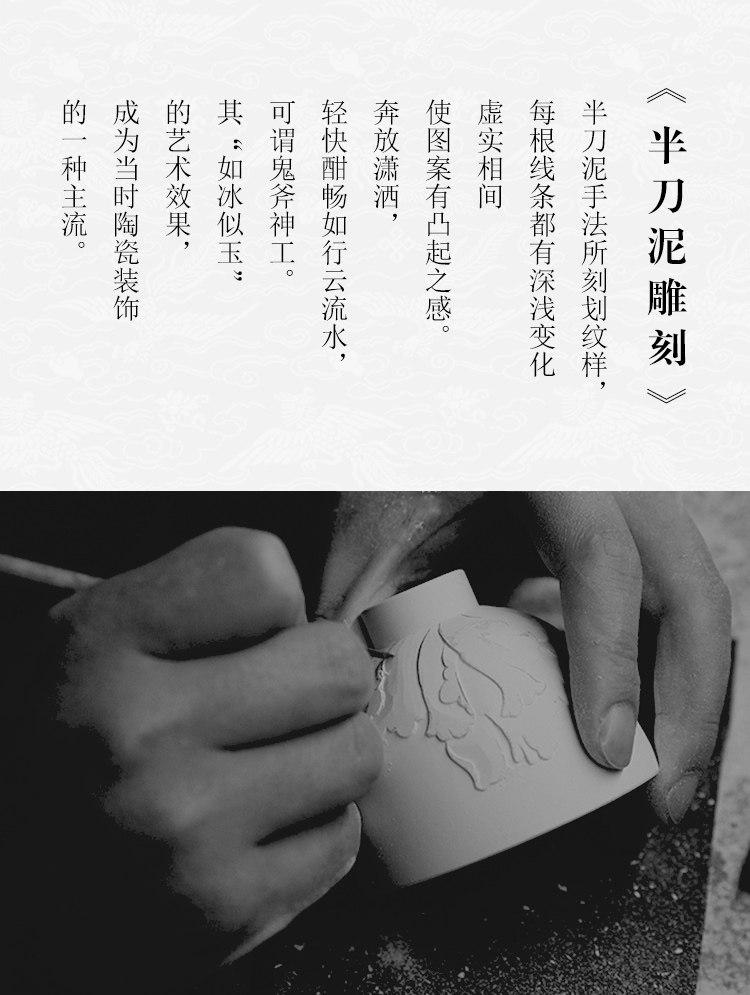 《半刀泥雕刻》
半刀泥手法所刻划纹样，
每根线条都有深浅变化
虚实相间
使图案有凸起之感。
奔放潇洒，
轻快酣畅如行云流水，
可谓鬼斧神工。
其“如冰似玉”
的艺术效果，
成为当时陶瓷装饰
的一种主流。